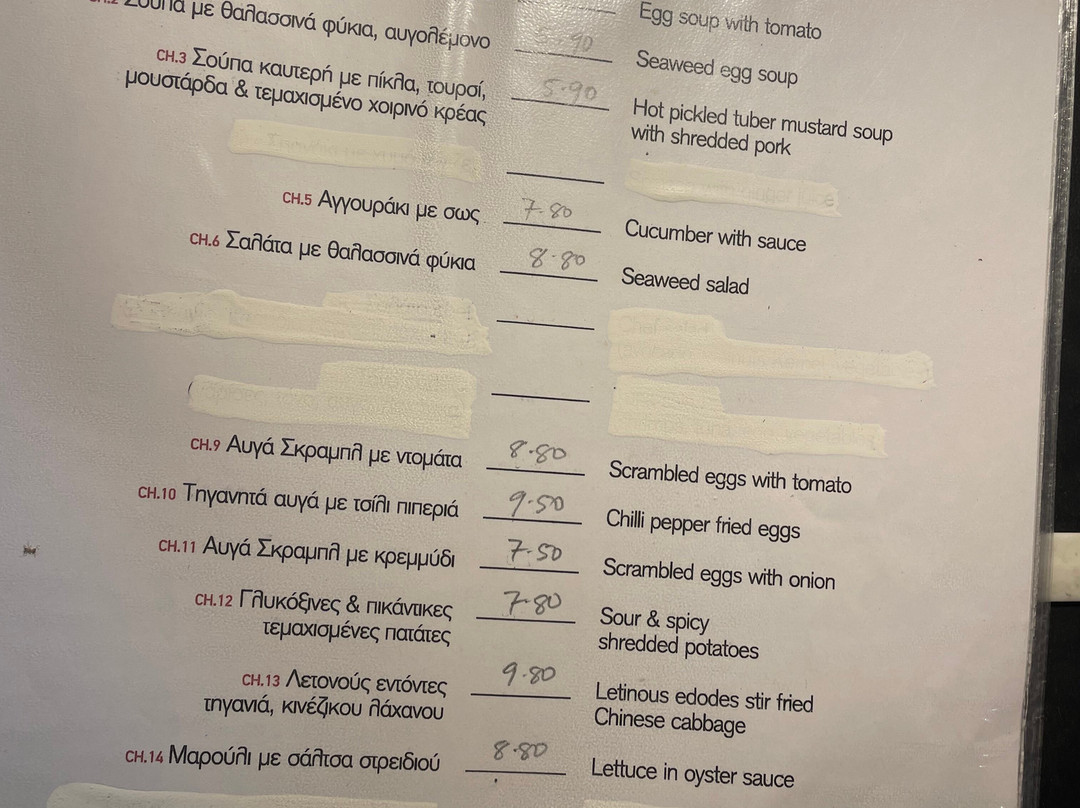 Egg soup with tomato
με θαλασσινά φύκια, αυγολέμονο 5.90 Seaweed egg soup
CH.3 Σούπα καυτερή με πίκλα, τουρσί, 5.90 Hot pickled tuber mustard soup
μουστάρδα & τεμαχισμένο χοιρινό κρέας with shredded pork
CH.5 Αγγουράκι με σως 7.80 Cucumber with sauce
CH.6 Σαλάτα με θαλασσινά φύκια 8.80 Seaweed salad
CH.9 Αυγά Σκραμπλ με ντομάτα 8.80 Scrambled eggs with tomato
CH.10 Τηγανητά αυγά με τσίλι πιπεριά 9.50 Chilli pepper fried eggs
CH.11 Αυγά Σκραμπλ με κρεμμύδι 7.50 Scrambled eggs with onion
CH.12 Γλυκόξινες & πικάντικες 7.80 Sour & spicy
τεμαχισμένες πατάτες shredded potatoes
CH.13 Λετονούς εντόντες 9.80 Letinous edodes stir fried
τηγανιά, κινέζικου λάχανου Chinese cabbage
CH.14 Μαρούλι με σάλτσα στρειδιού 8.80 Lettuce in oyster sauce